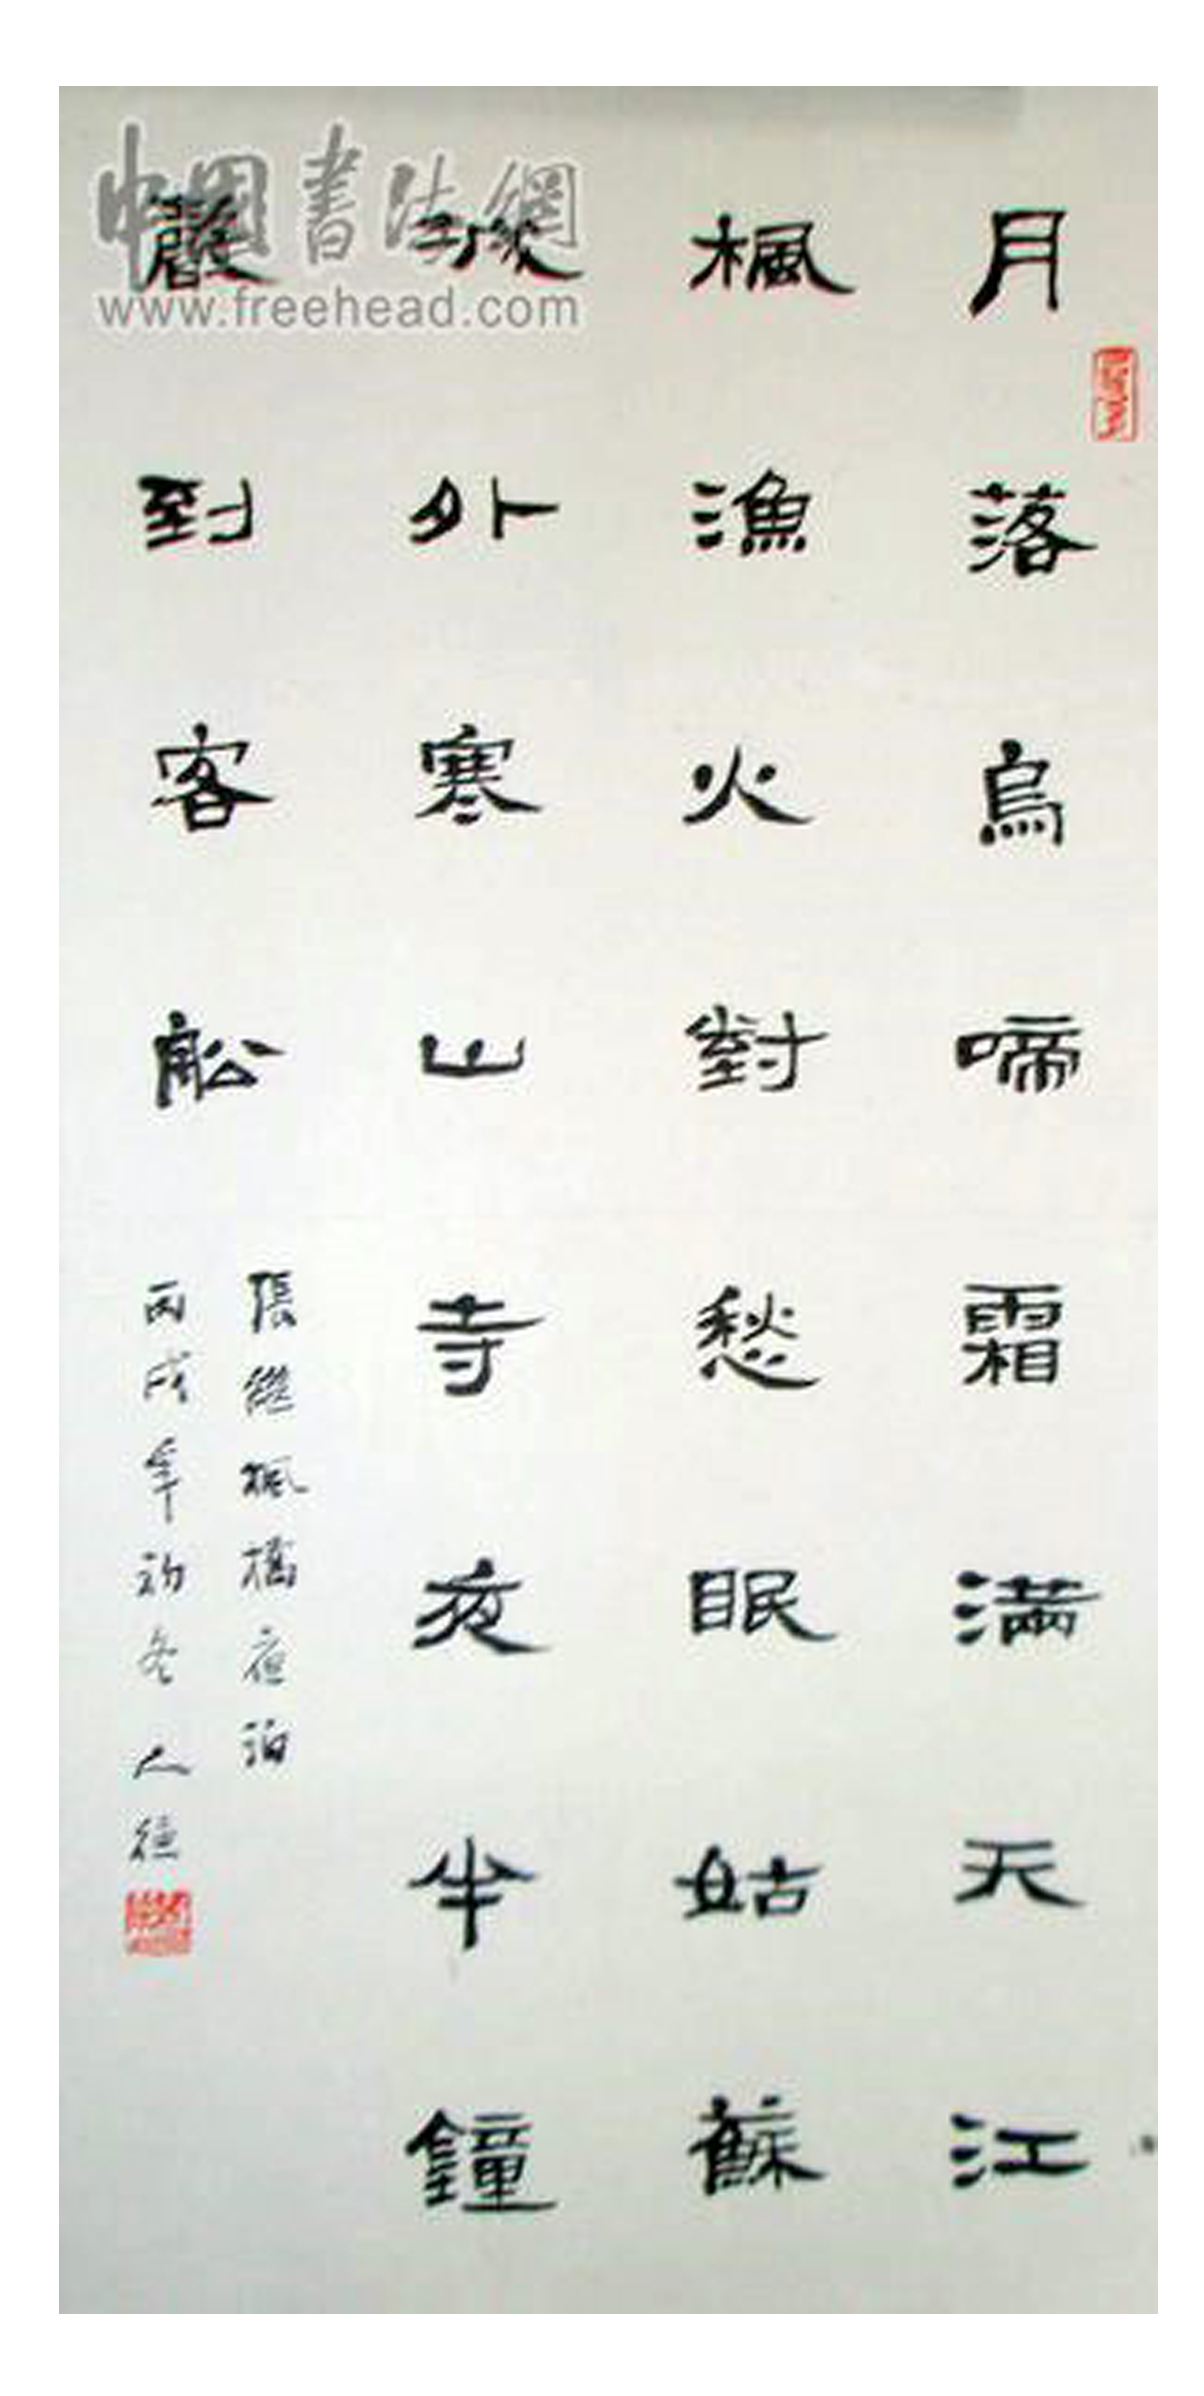 月落烏啼霜滿天江
楓漁火對愁眠姑蘇
城外寒山寺夜半鐘
聲到客船
張繼楓橋夜泊
丙戌年初冬 人德
中国書法網
www.freehead.com